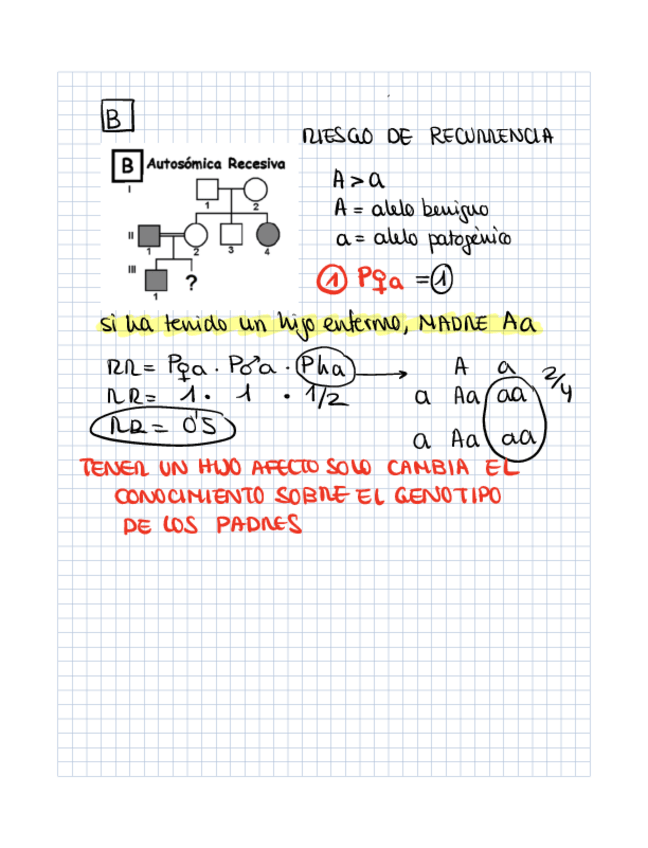 B
RIESGO DE RECURRENCIA
B Autosómica Recesiva
I
1 2
II
1 2 3 4
III
1 ?
A > a
A = alelo benigno
a = alelo patogénico
① P♀a = ①
si ha tenido un hijo enfermo, MADRE Aa
RR = P♀a · P♂a · Pha → A a 2/4
RR = 1 · 1 · 1/2 a Aa aa
RR = 0'5 a Aa aa
TENER UN HIJO AFECTO SOLO CAMBIA EL
CONOCIMIENTO SOBRE EL GENOTIPO
DE LOS PADRES